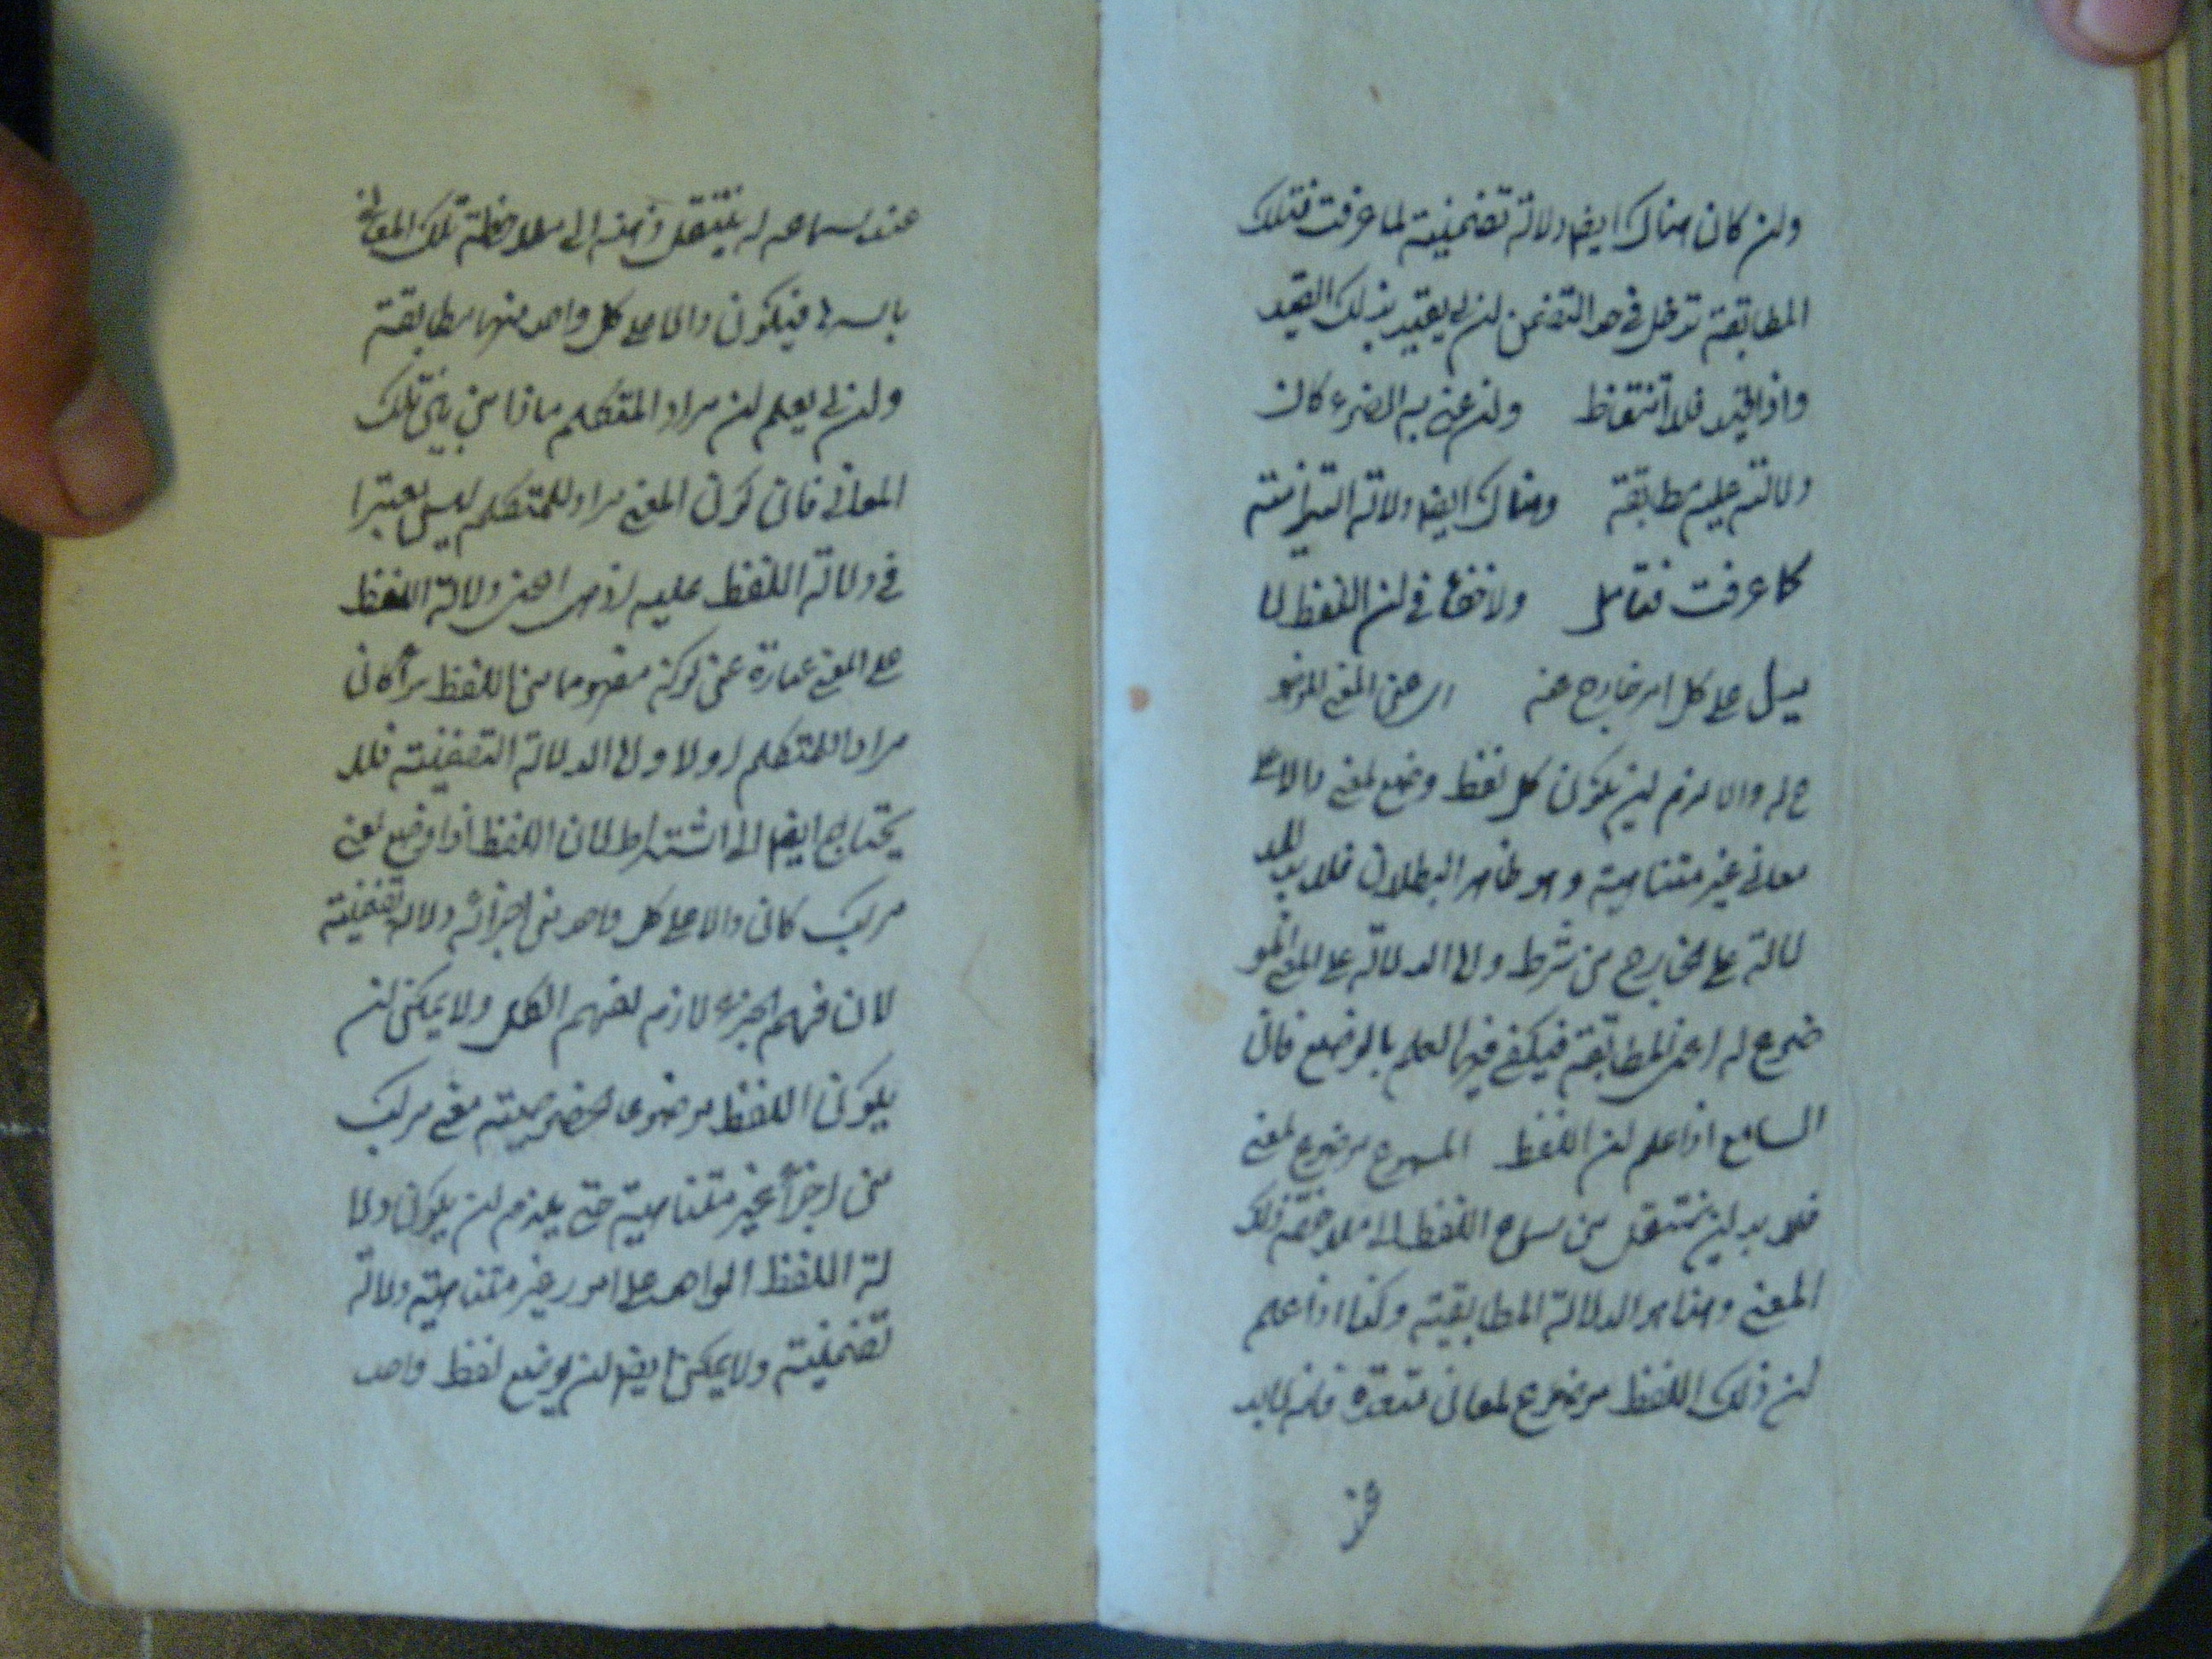 وان كان هناك ايضا دلالة تضمنية لما عرفت فتلك
المطابقة تدخل في حد التضمن ان لم يقيد بذلك القيد
واذا قيد فلا انتقاظ وان عنى به الضوء كان
دلالته عليه مطابقة وهناك ايضا دلالة التزامية
كما عرفت فتامل ولا خفاء في ان اللفظ لا
يدل على كل امر خارج عنه اى عن المعنى الموضو
ع له والا لزم ان يكون كل لفظ وضع لمعنى دالا على
معانى غير متناهية وهو ظاهر البطلان فلا بد للد
لالة على الخارج من شرط واما الدلالة على المعنى المو
ضوع له اعنى المطابقة فيكفى فيها العلم بالوضع فان
السامع اذا علم ان اللفظ المسموع موضوع لمعنى
فلا بد ان ينتقل من سماع اللفظ الى ملاحظة ذلك
المعنى وهذا هو الدلالة المطابقية وكذا اذا علم
ان ذلك اللفظ موضوع لمعانى متعددة فانه لا بد
عند سماعه له ينتقل ذهنه الى ملاحظة تلك المعانى
باسرها فيكون دالا على كل واحد منها مطابقة
وان لم يعلم ان مراد المتكلم ماذا من بين تلك
المعانى فان كون المعنى مرادا للمتكلم ليس معتبرا
في دلالة اللفظ عليه اذ هى اعنى دلالة اللفظ
على المعنى عبارة عن كونه مفهوما من اللفظ سواء كان
مرادا للمتكلم او لا واما الدلالة التضمنية فلا
يحتاج ايضا الى اشتراط لان اللفظ اذا وضع لمعنى
مركب كان دالا على كل واحد من اجزائه دلالة تضمنية
لان فهم الجزء لازم لفهم الكل ولا يمكن ان
يكون اللفظ موضوعا لخصوصية معنى مركب
من اجزاء غير متناهية حتى يلزم ان يكون دلا
لة اللفظ الواحد على امور غير متناهية دلالة
تضمنية ولا يمكن ايضا ان يوضع لفظ واحد